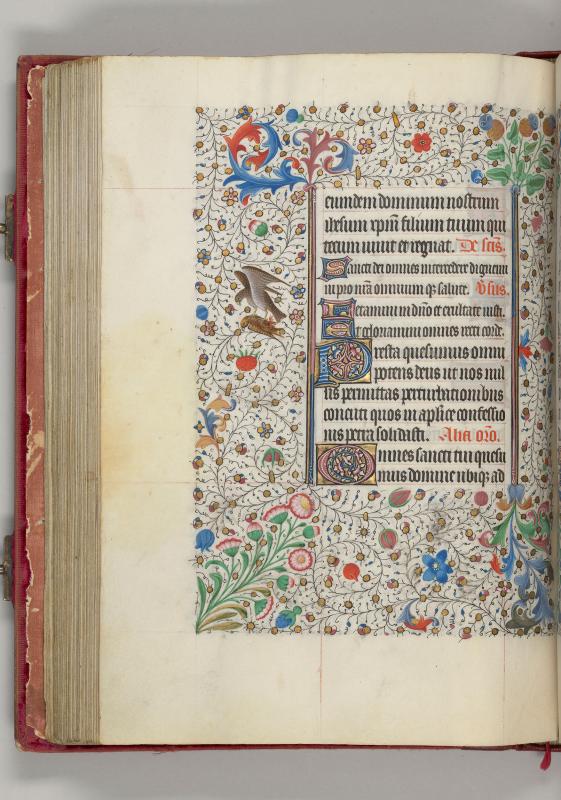 eundem dominum nostrum
ihesum xpm filium tuum qui
tecum viuit et regnat. De scis.
Sancti dei omnes intercedere dignemini
pro nra omnium qz salute. Vsus.
Letamini in dno et exultate iusti.
Et gloriamini omnes recti corde.
Presta quesumus omni
potens deus ut nos nul
lis permittas perturbationibus
concuti quos in aplice confessio
nis petra solidasti. Alia oro.
Omnes sancti tui quesu
mus domine ubiqz ad